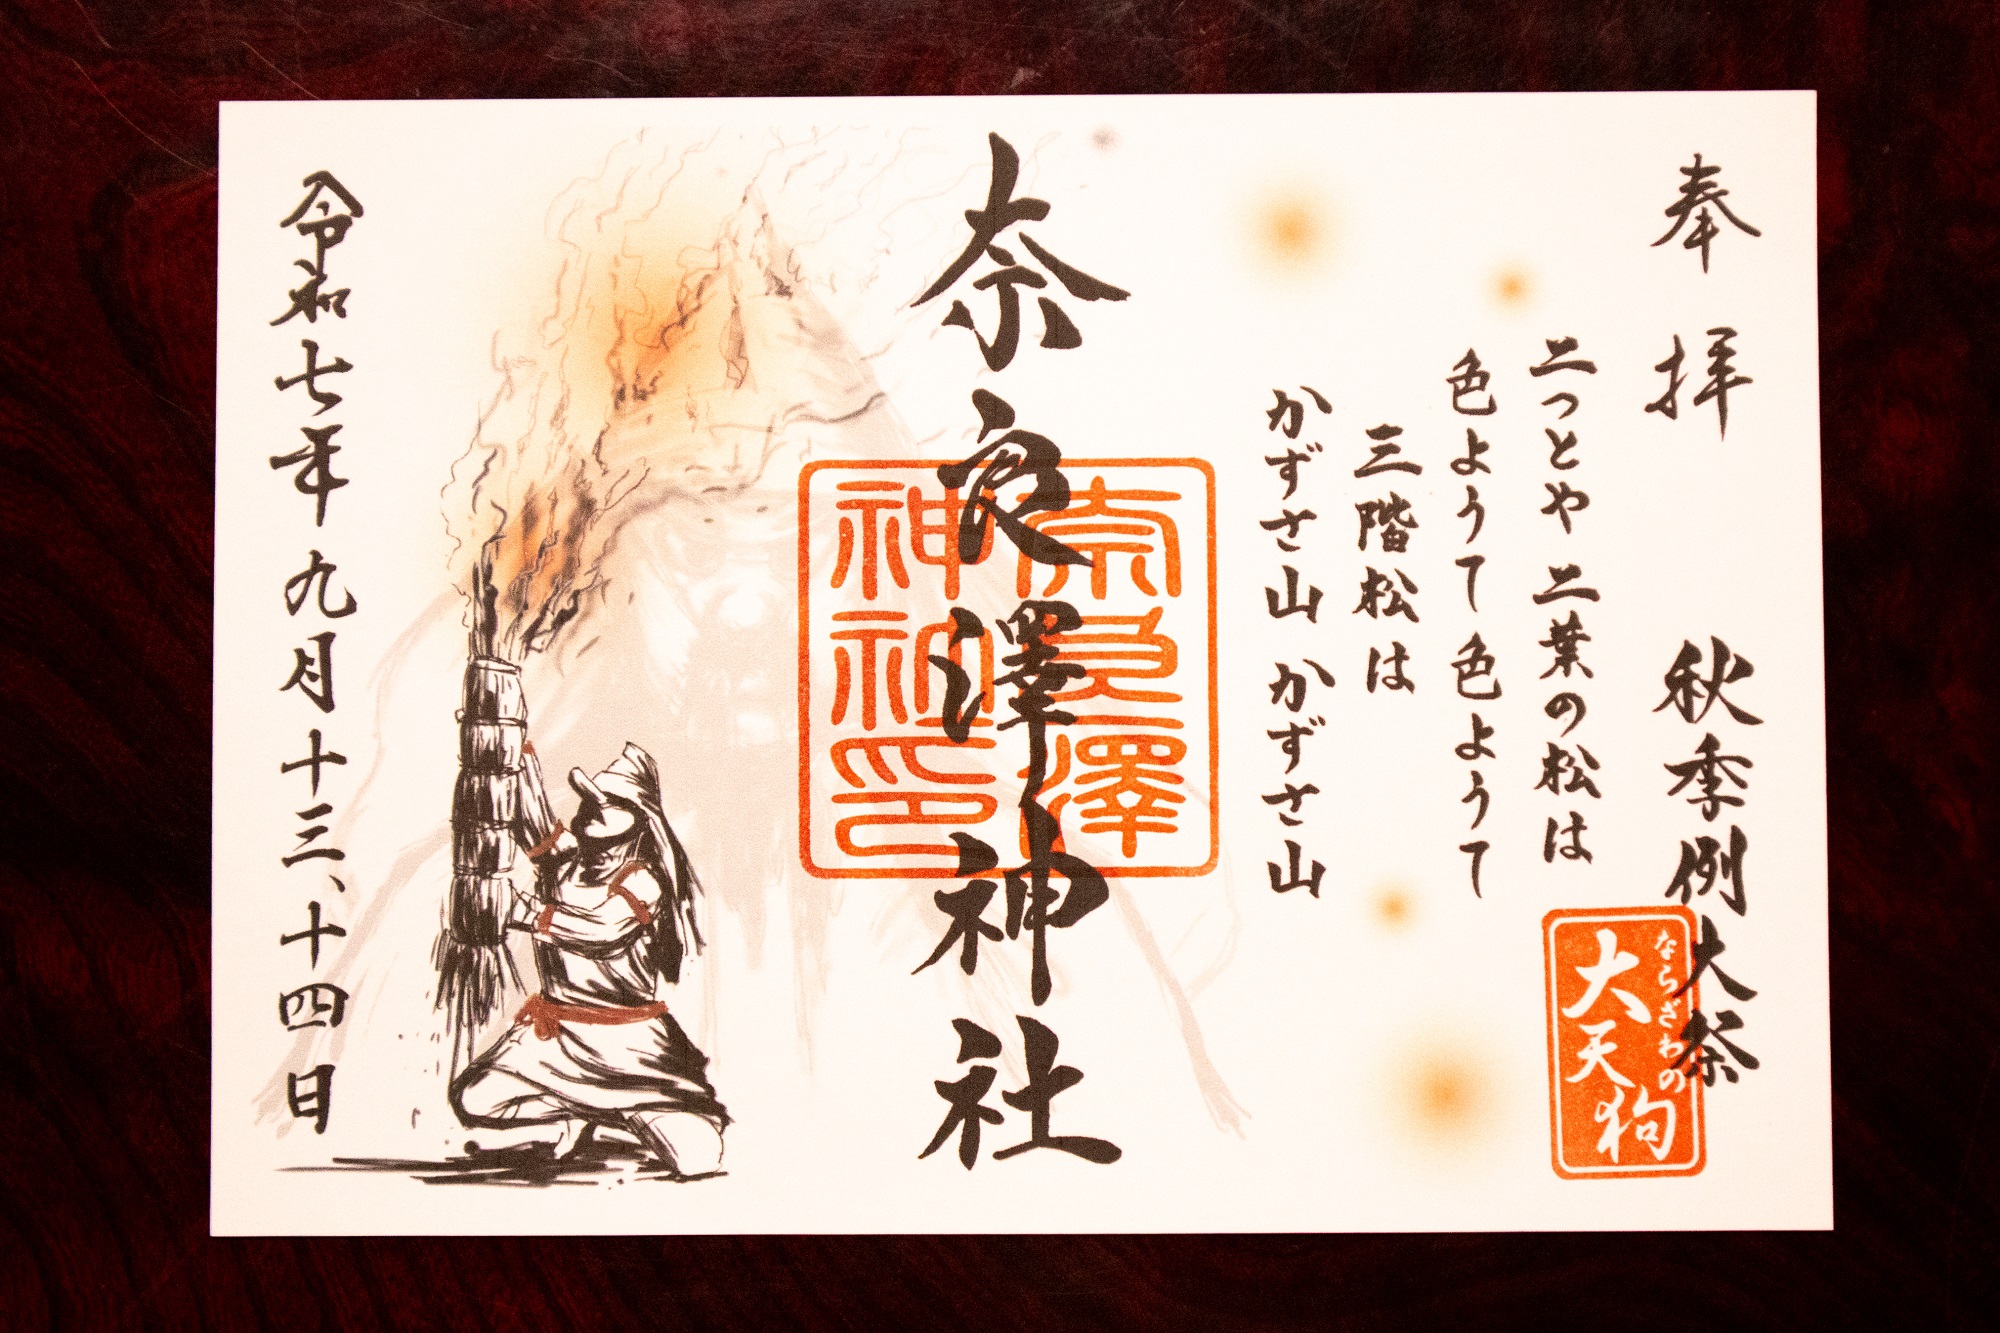 奉拝　秋季例大祭
ならさわの
大天狗
二つとや 二葉の松は
色ようて色ようて
三階松は
かずさ山 かずさ山
奈良澤神社
奈良澤
神社印
令和七年九月十三、十四日